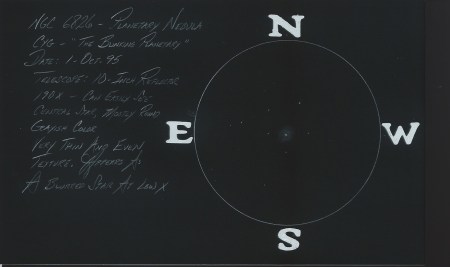 NGC 6826 - Planetary Nebula
CYG - "The Blinking Planetary"
Date: 1-Oct-95
Telescope: 10-Inch Reflector
190X - Can Easily See
Central Star, Mostly Round
Grayish Color
Very Thin And Even
Texture. Appears As
A Bloated Star At Low X
N
E
W
S